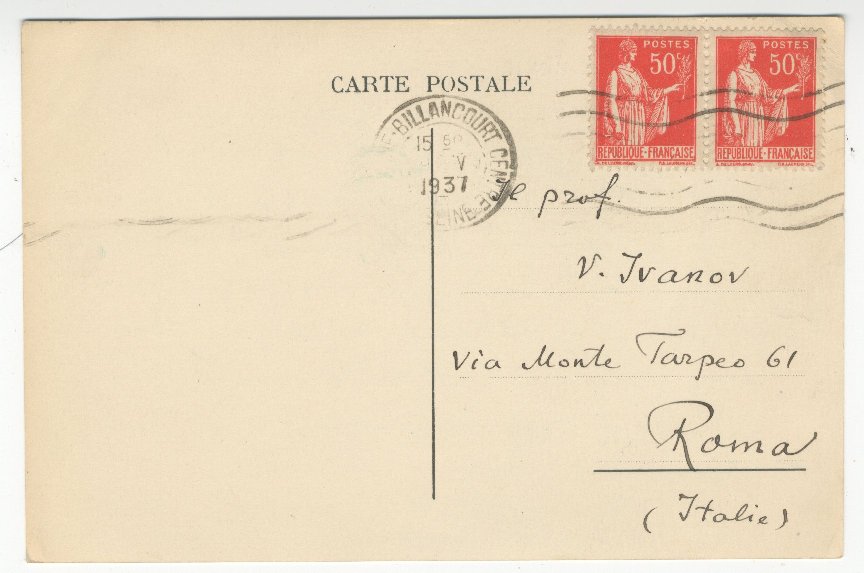 CARTE POSTALE
POSTES
50c
REPUBLIQUE-FRANÇAISE
POSTES
50c
REPUBLIQUE-FRANÇAISE
BILLANCOURT CENTRE
15
V
1937
SEINE
prof.
V. Ivanov
Via Monte Tarpeo 61
Roma
(Italie)